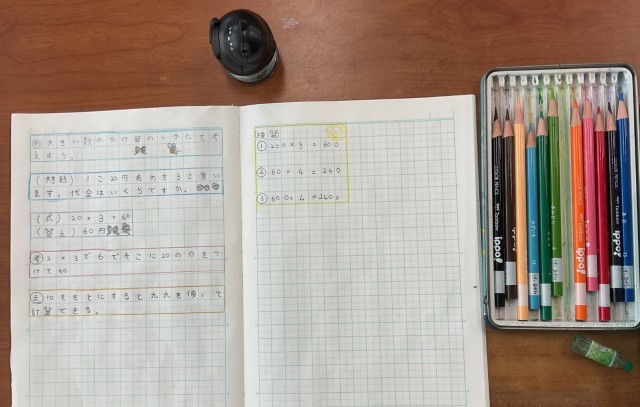 め 大きい数のかけ算のしかたを考
えよう。
(問題) 1こ20円のあめを3こ買い
ます。代金はいくらですか。
(式) 20×3=60
(答え) 60円
考 2×3で6でそこに20の0をつ
けて60
ま 10をもとにすると九九を使って
計算できる。
練習
① 200×3=600
② 60×4=240
③ 600×4=2400
COLOR PENCIL
Tombow
ippo!